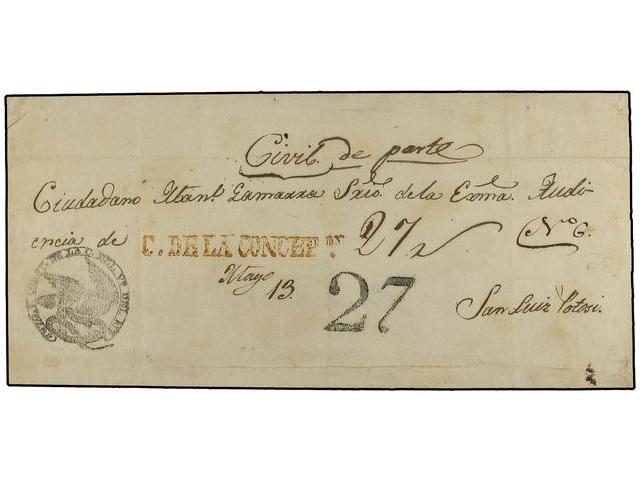 Civil. de parte
Ciudadano Man.l Gamarra Srio. de la Exma. Audi
encia de C. DE LA CONCEP.N 27 N.o 6.
Mayo
13. 27 San Luiz Potosi.